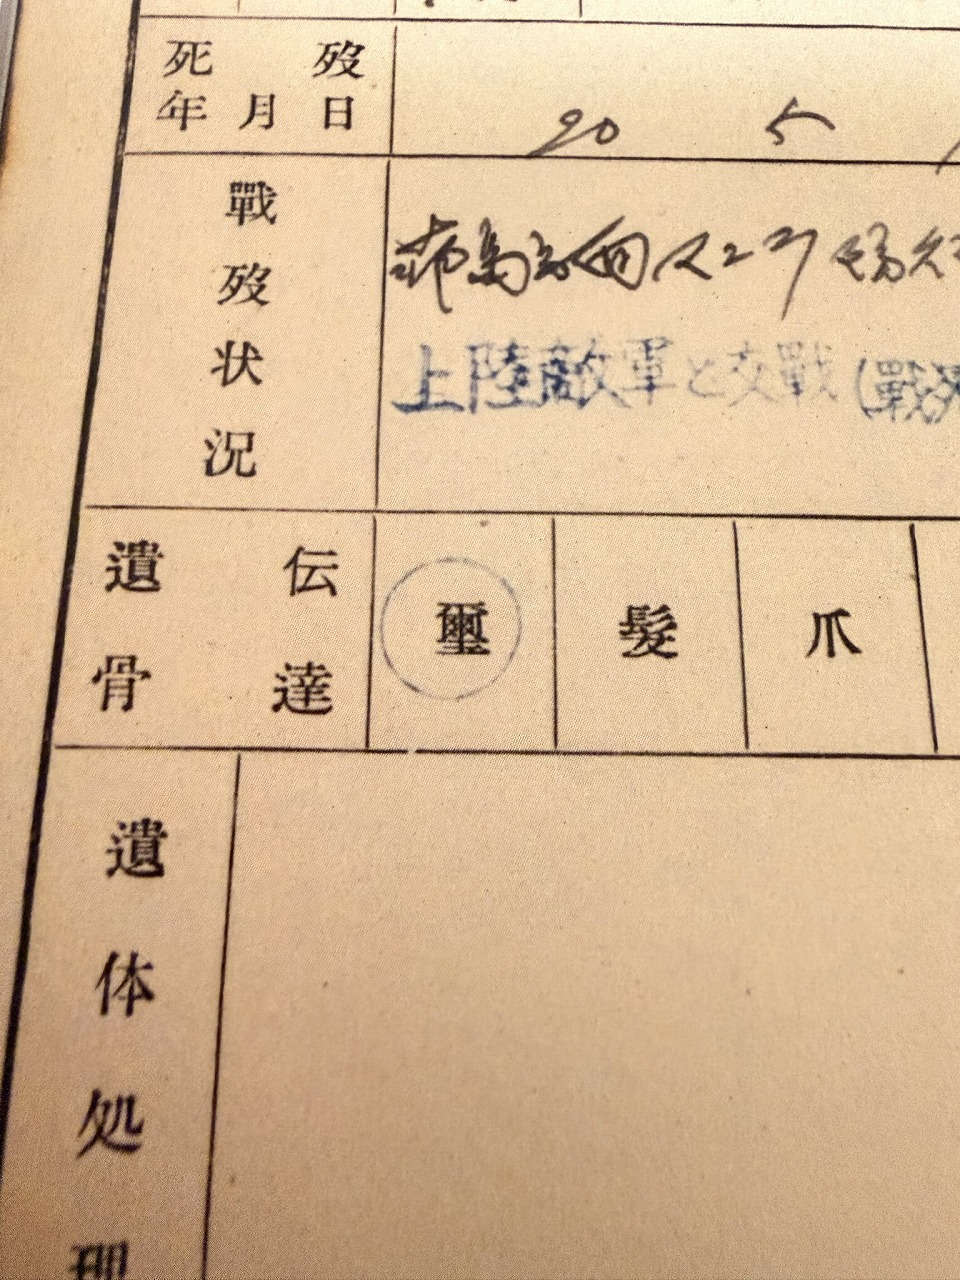 死歿
年月日
20 5
戰歿状況
上陸敵軍と交戰(戰死
遺骨伝達
璽
髮
爪
遺体処理